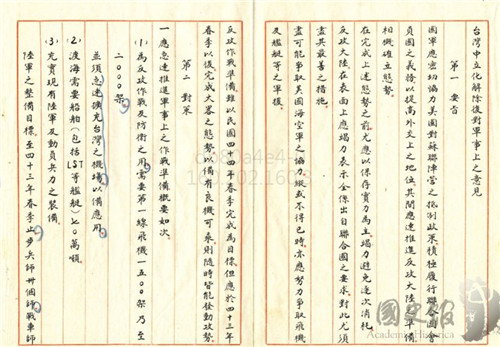 台灣中立化解除後對軍事上之意見
第一 要旨
國軍應密切協力美國對蘇聯陣營之抵制政策積極履行聯合國會
員國之義務以提高外交上之地位其間應速推進反攻大陸之準備
相機確立態勢
在完成上述態勢之前尤應以保存實力為主竭力避免逐次消耗
反攻大陸在表面上應竭力表示全係出自聯合國之要求對此尤須
盡其最善之措施
盡可能爭取美國海空軍之協力縱或不得已時亦應努力爭取飛機
及艦艇等之軍援
第二 對策
反攻作戰準備雖以民國四十四年春季完成為目標但應於四十三年
春季以後完成大畧之態勢以備有良機可乘則隨時皆能發動攻勢
一應急速推進軍事上之作戰準備概要如次
(1)為反攻作戰及防衛之用需要第一線飛機一五〇〇架乃至
二〇〇〇架
並須急速擴充台灣之機場以備應用
(2)渡海需要船舶(包括LST等艦艇)七〇萬噸
(3)充實現有陸軍及動員兵力之裝備
陸軍之整備目標至四十三年春季止步兵師卅個師戰車師
國史館
Academia Historica